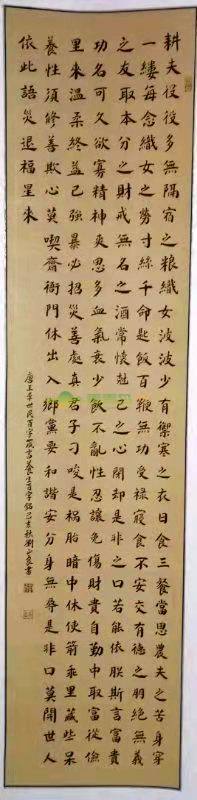 耕夫役役多無隔宿之粮織女波波少有禦寒之衣日食三餐當思農夫之苦身穿
一縷每念織女之勞寸絲千命匙飯百鞭無功受禄寢食不安交有德之朋絕無義
之友取本分之財戒無名之酒常懷尅己之心閉却是非之口若能依朕斯言富貴
功名可久欲寡精神爽思多血氣衰少飲不亂性忍讓免傷財貴自勤中取富從儉
里來温柔終益己强暴必招災善處真君子刁唆是禍胎暗中休使箭乖里藏些呆
養性須修善欺心莫喫齋衙門休出入鄉黨要和諧安分身無辱是非口莫開世人
依此語災退福星来
唐王李世民百字箴言養生百字銘己亥秋劉書